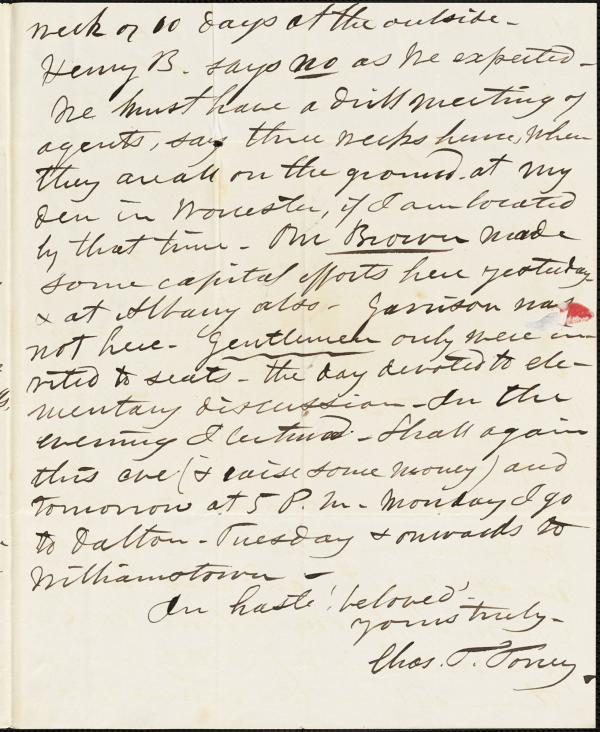 week or 10 days at the outside -
Henry B. says no as we expected -
We must have a drill meeting of
agents, say three weeks hence, when
they are all on the ground - at my
den in Worcester, if I am located
by that time - Our Brown made
some capital efforts here yesterday
& at Albany also - Garrison was
not here - Gentlemen only were in-
vited to seats - the day devoted to ele-
mentary discussion - In the
evening I lectured - Shall again
this eve (& raise some money) and
tomorrow at 5 P.M - Monday I go
to Dalton - Tuesday & onwards to
Williamstown -
In haste! beloved -
yours truly -
Chas. T. Torrey.